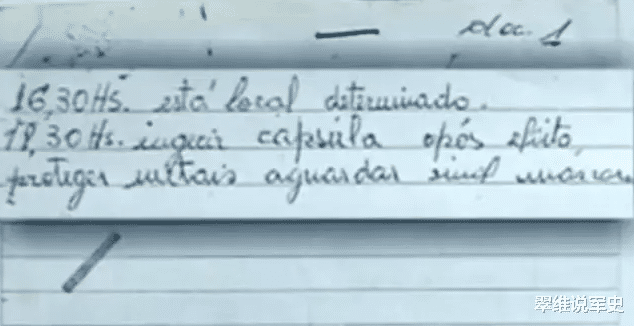 doc. 1
16,30Hs. está local determinado.
18,30Hs. ingerir capsula após efeito
proteger metais aguardar sinal mascara
翠维说军史